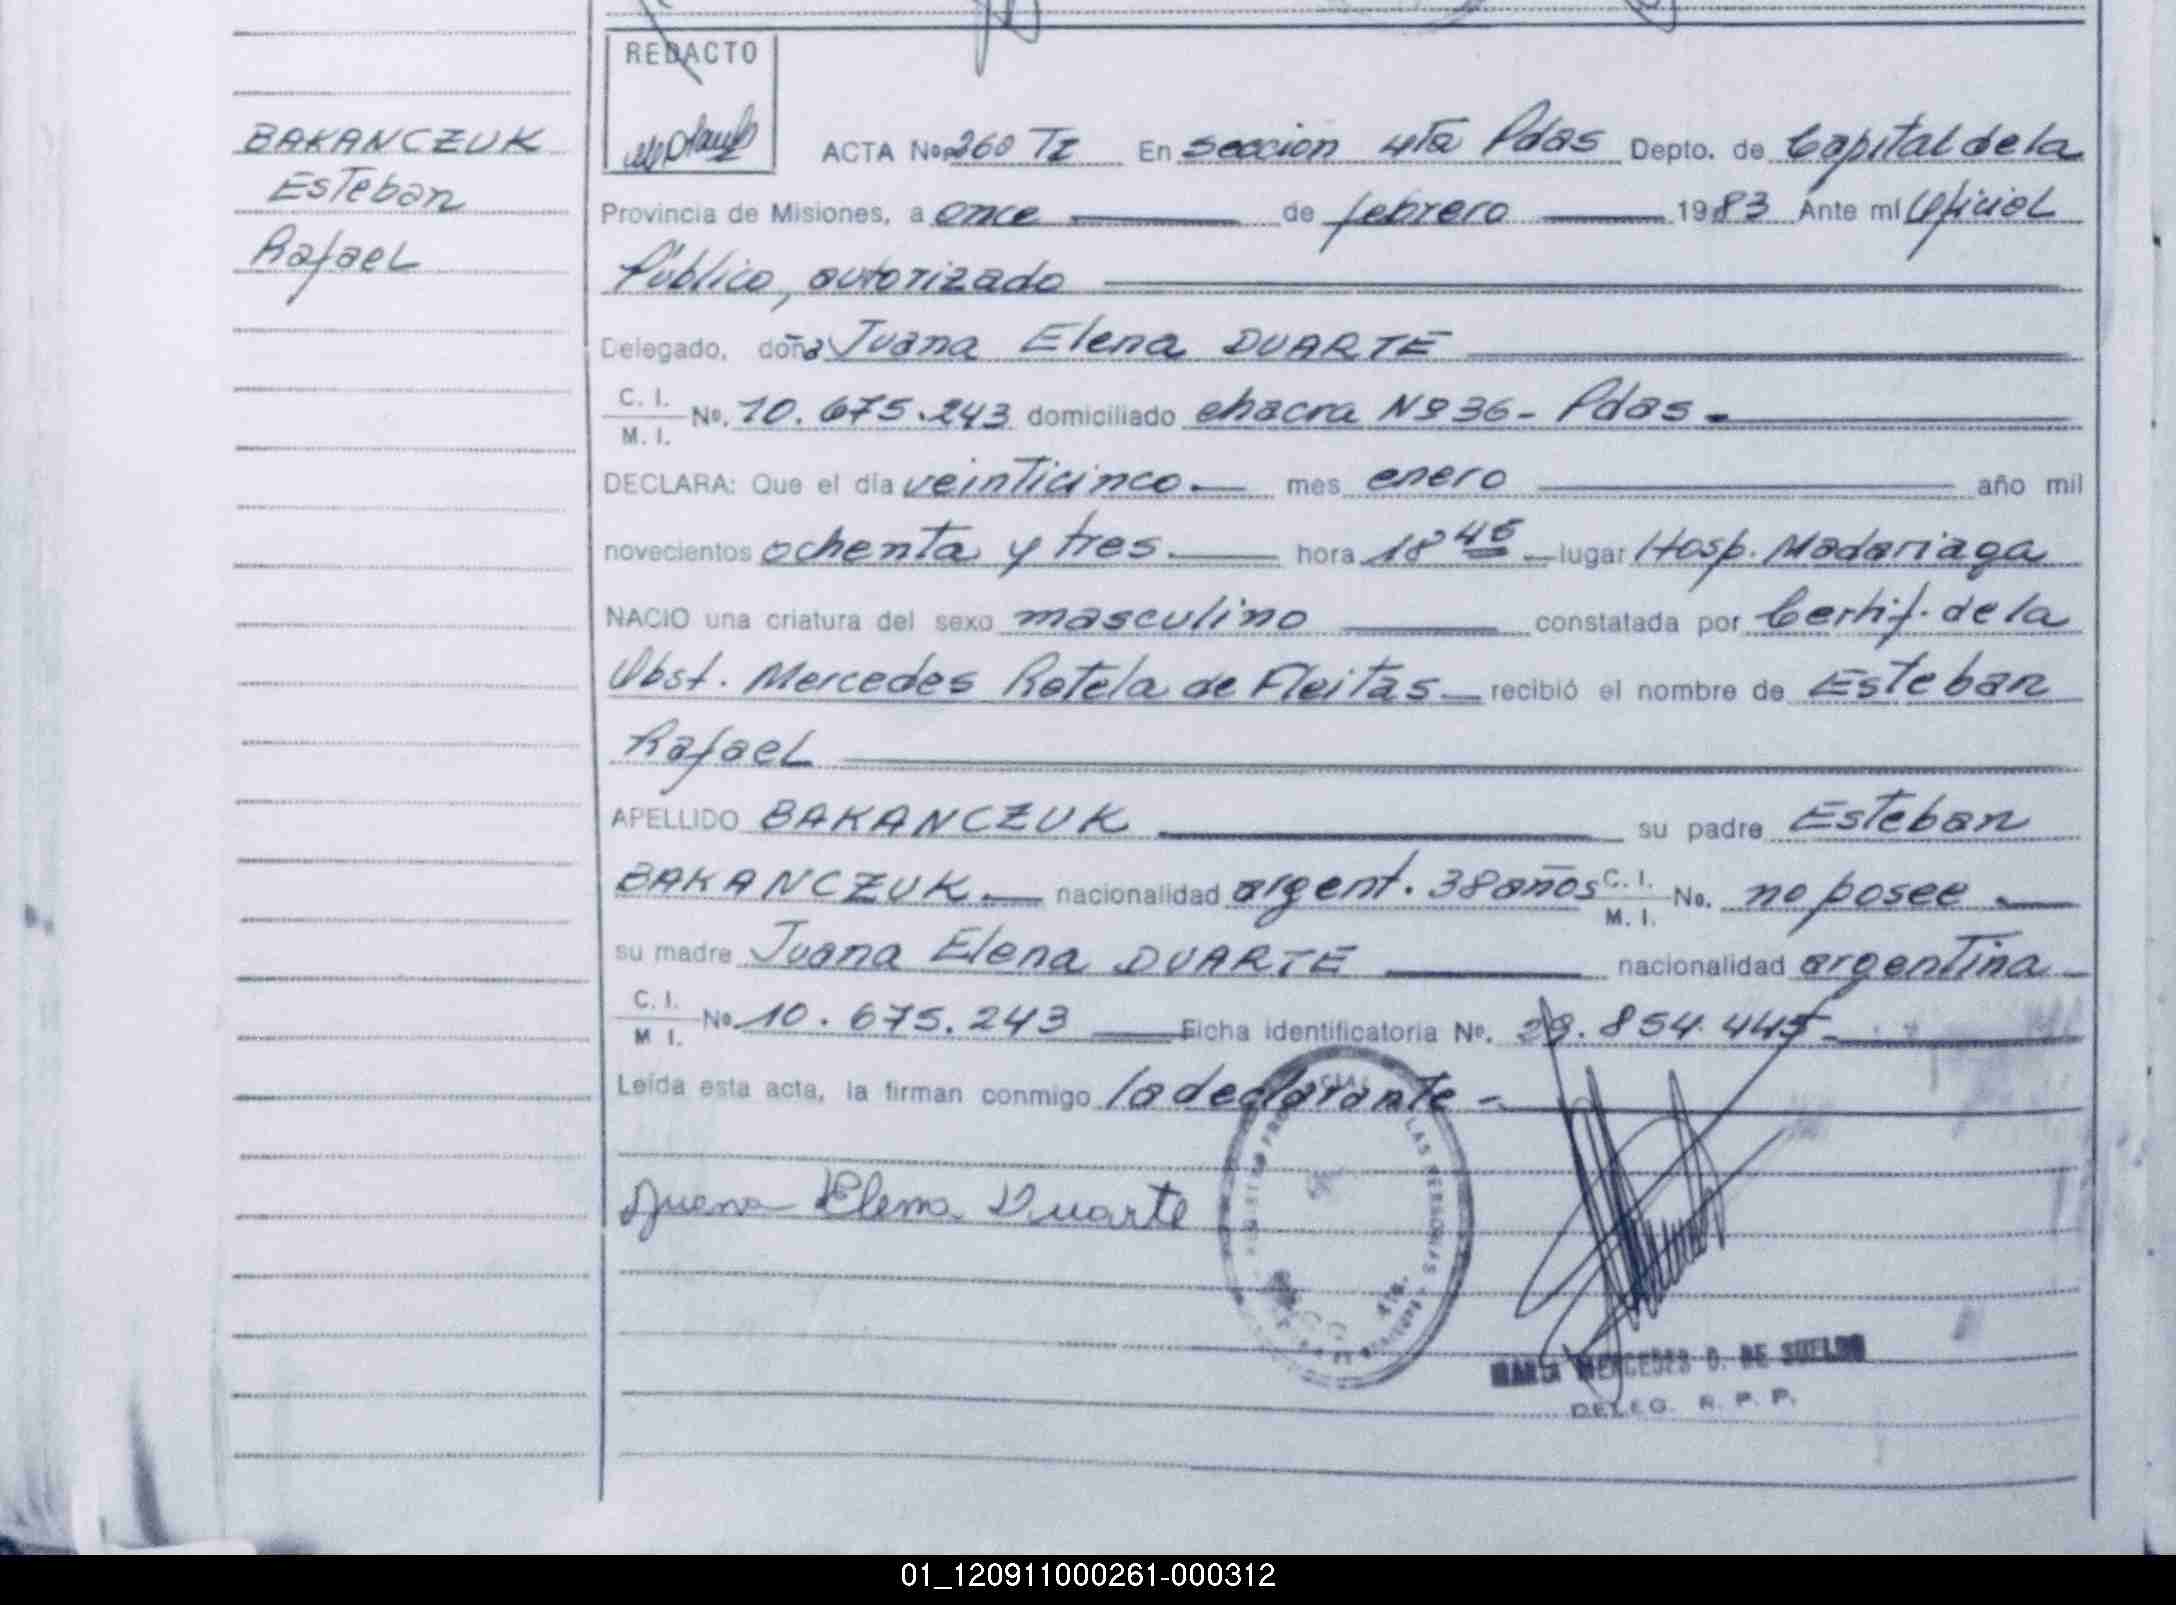 BAKANCZUK
Esteban
Rafael
REDACTO
ACTA No. 260 TI En seccion 4ta Pdas Depto. de Capital de la
Provincia de Misiones, a once de febrero 1983 Ante mí Oficial
Público, autorizado
Delegado, doña Juana Elena DUARTE
C. I.
M. I. No. 10.675.243 domiciliado chacra Nº 36 - Pdas.
DECLARA: Que el día veinticinco mes enero año mil
novecientos ochenta y tres. hora 18 45 lugar Hosp. Madariaga
NACIO una criatura del sexo masculino constatada por Certif. de la
Obst. Mercedes Rotela de Fleitas recibió el nombre de Esteban
Rafael
APELLIDO BAKANCZUK su padre Esteban
BAKANCZUK. nacionalidad argent. 38 años C. I. M. I. No. no posee
su madre Juana Elena DUARTE nacionalidad argentina
C. I.
M. I. No. 10.675.243 Ficha identificatoria No. 29.854.445
Leída esta acta, la firman conmigo la declarante -
Juana Elena Duarte
MARIA MERCEDES D. DE SUELDO
DELEG. R. P. P.
01_120911000261-000312